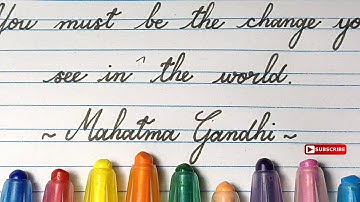 You must be the change yo
see in the world.
~ Mahatma Gandhi ~
SUBSCRIBE